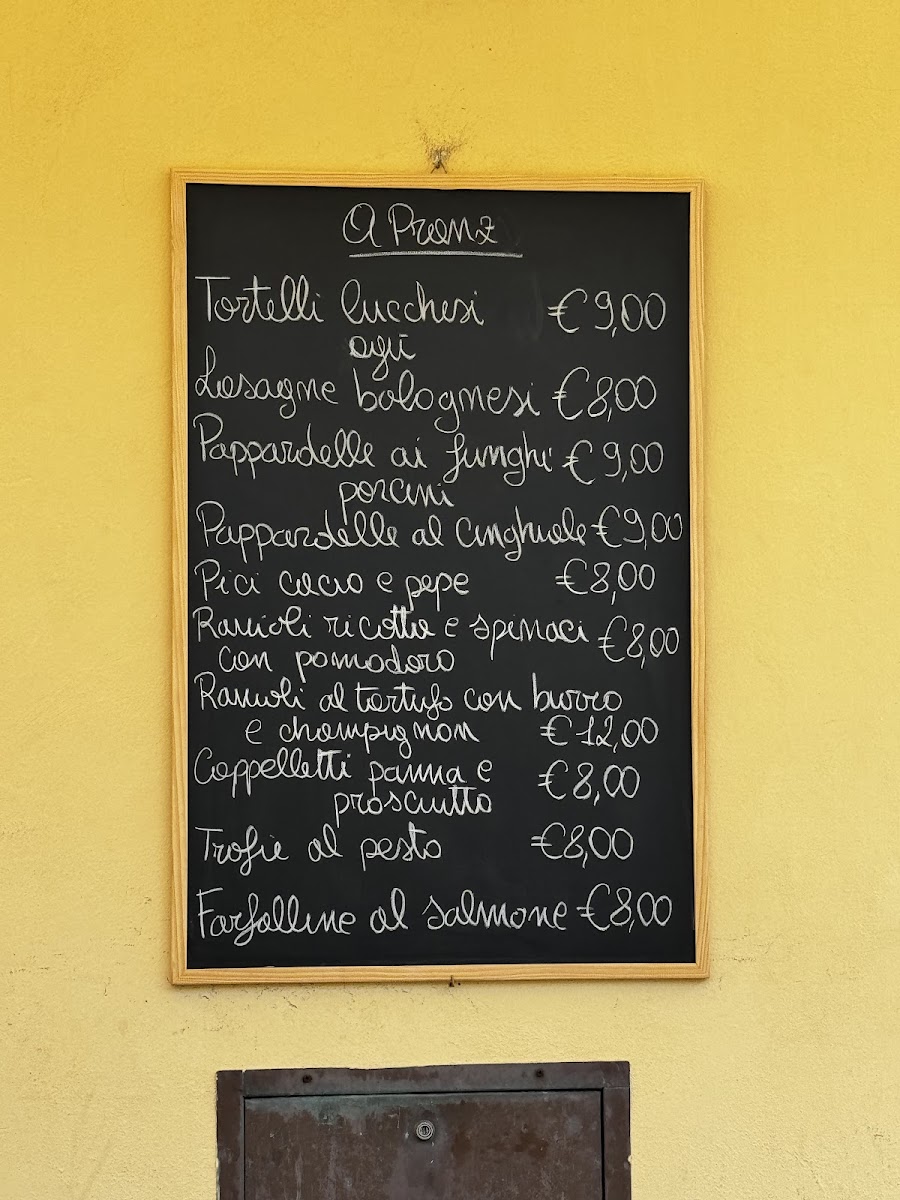 A Pranz
Tortelli lucchesi €9,00
agù
Lasagne bolognesi €8,00
Pappardelle ai funghi €9,00
porcini
Pappardelle al cinghiale €9,00
Pici cacio e pepe €8,00
Ravioli ricotta e spinaci €8,00
con pomodoro
Ravioli al tartufo con burro
e champignon €12,00
Cappelletti panna e €8,00
prosciutto
Trofie al pesto €8,00
Farfalline al salmone €8,00